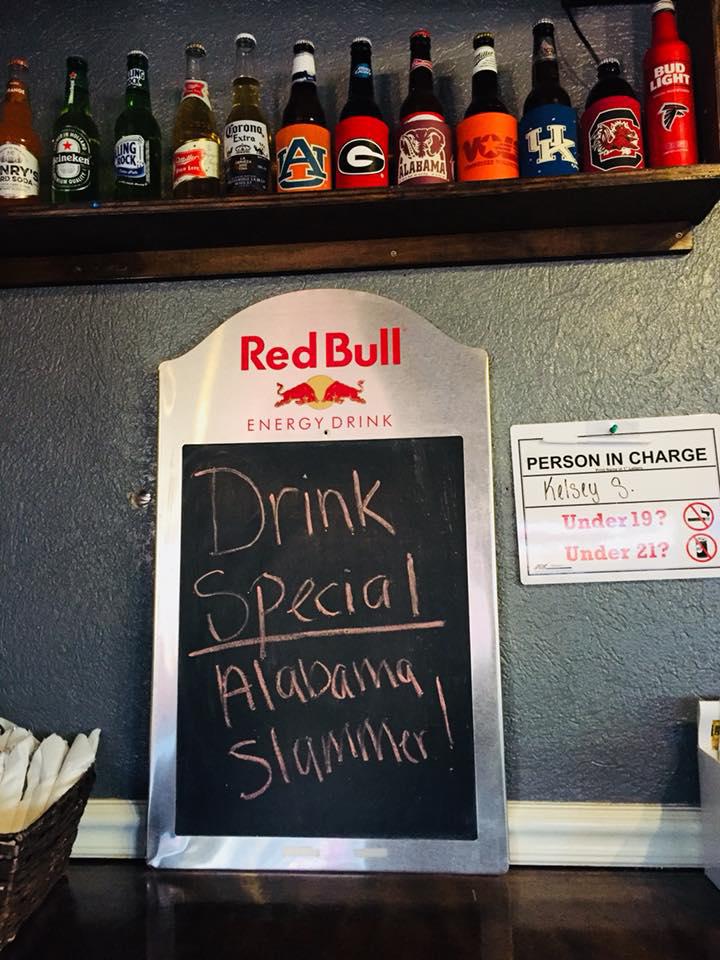 RANGE
NRY'S
RD SODA
Heineken
LING
ROCK
LING
ROCK
Miller
HIGH LIFE
Corona
Extra
AU
G
ALABAMA
VOLS
UK
CAROLINA
BUD
LIGHT
Red Bull
ENERGY DRINK
Drink
Special
Alabama
Slammer!
PERSON IN CHARGE
Kelsey S.
Under 19?
Under 21?